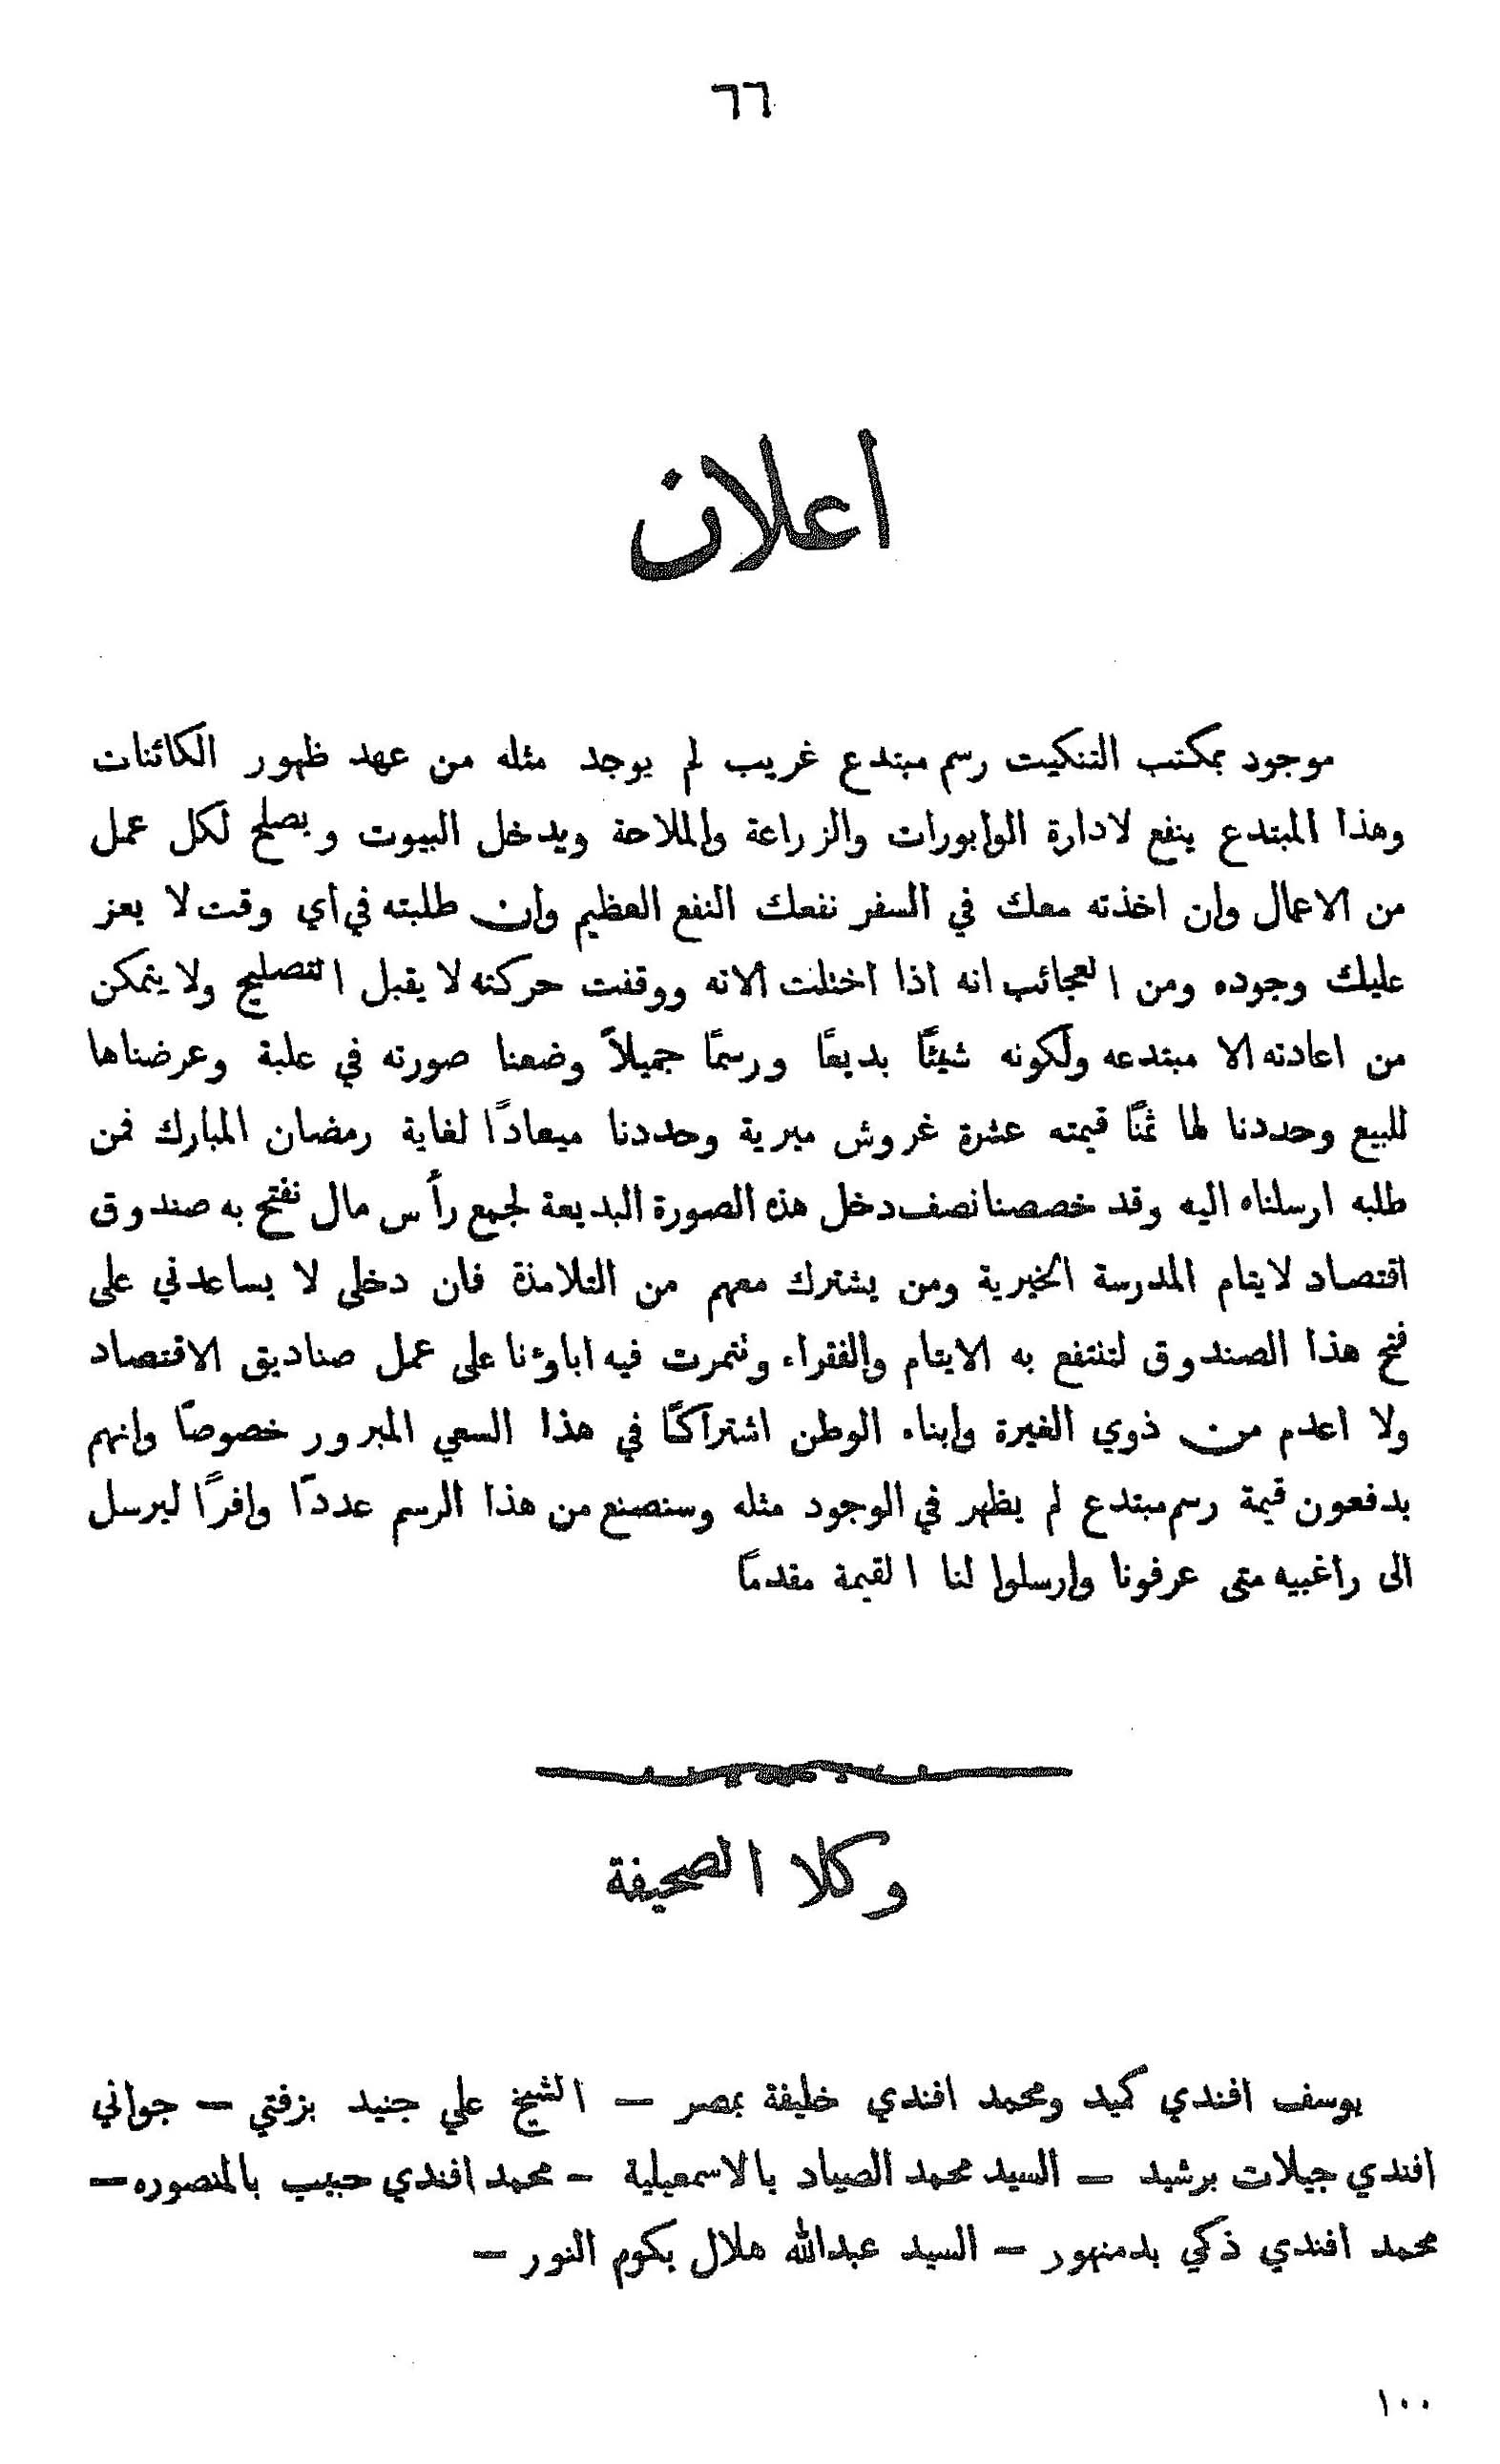 ٦٦
اعلان
موجود بمكتب التنكيت رسم مبتدع غريب لم يوجد مثله من عهد ظهور الكائنات
وهذا المبتدع ينفع لادارة الوابورات والزراعة والملاحة ويدخل البيوت ويصلح لكل عمل
من الاعمال وان اخذته معك في السفر نفعك النفع العظيم وان طلبته في اي وقت لا يعز
عليك وجوده ومن العجائب انه اذا اختلت الاته ووقفت حركته لا يقبل التصليح ولا يتمكن
من اعادته الا مبتدعه ولكونه شيئًا بديعًا ورسمًا جميلاً وضعنا صورته في علبة وعرضناها
للبيع وحددنا لها ثمنًا قيمته عشرة غروش ميرية وحددنا ميعادًا لغاية رمضان المبارك فمن
طلبه ارسلناه اليه وقد خصصنا نصف دخل هذه الصورة البديعة لجمع رأس مال نفتح به صندوق
اقتصاد لايتام المدرسة الخيرية ومن يشترك معهم من التلامذة فان دخلي لا يساعدني على
فتح هذا الصندوق لتنتفع به الايتام والفقراء ونتمرت فيه اباؤنا على عمل صناديق الاقتصاد
ولا اعدم من ذوي الغيرة وابناء الوطن اشتراكًا في هذا السعي المبرور خصوصًا وانهم
يدفعون قيمة رسم مبتدع لم يظهر في الوجود مثله وسنصنع من هذا الرسم عددًا وافرًا ليرسل
الى راغبيه متى عرفونا وارسلوا لنا القيمة مقدمًا
وكلا الصحيفة
يوسف افندي كيد ومحمد افندي خليفة بمصر — الشيخ علي جنيد بزفتي — جواني
افندي جيلات برشيد — السيد محمد الصياد بالاسمعيلية — محمد افندي حبيب بالمنصوره —
محمد افندي ذكي بدمنهور — السيد عبدالله هلال بكوم النور —
١٠٠